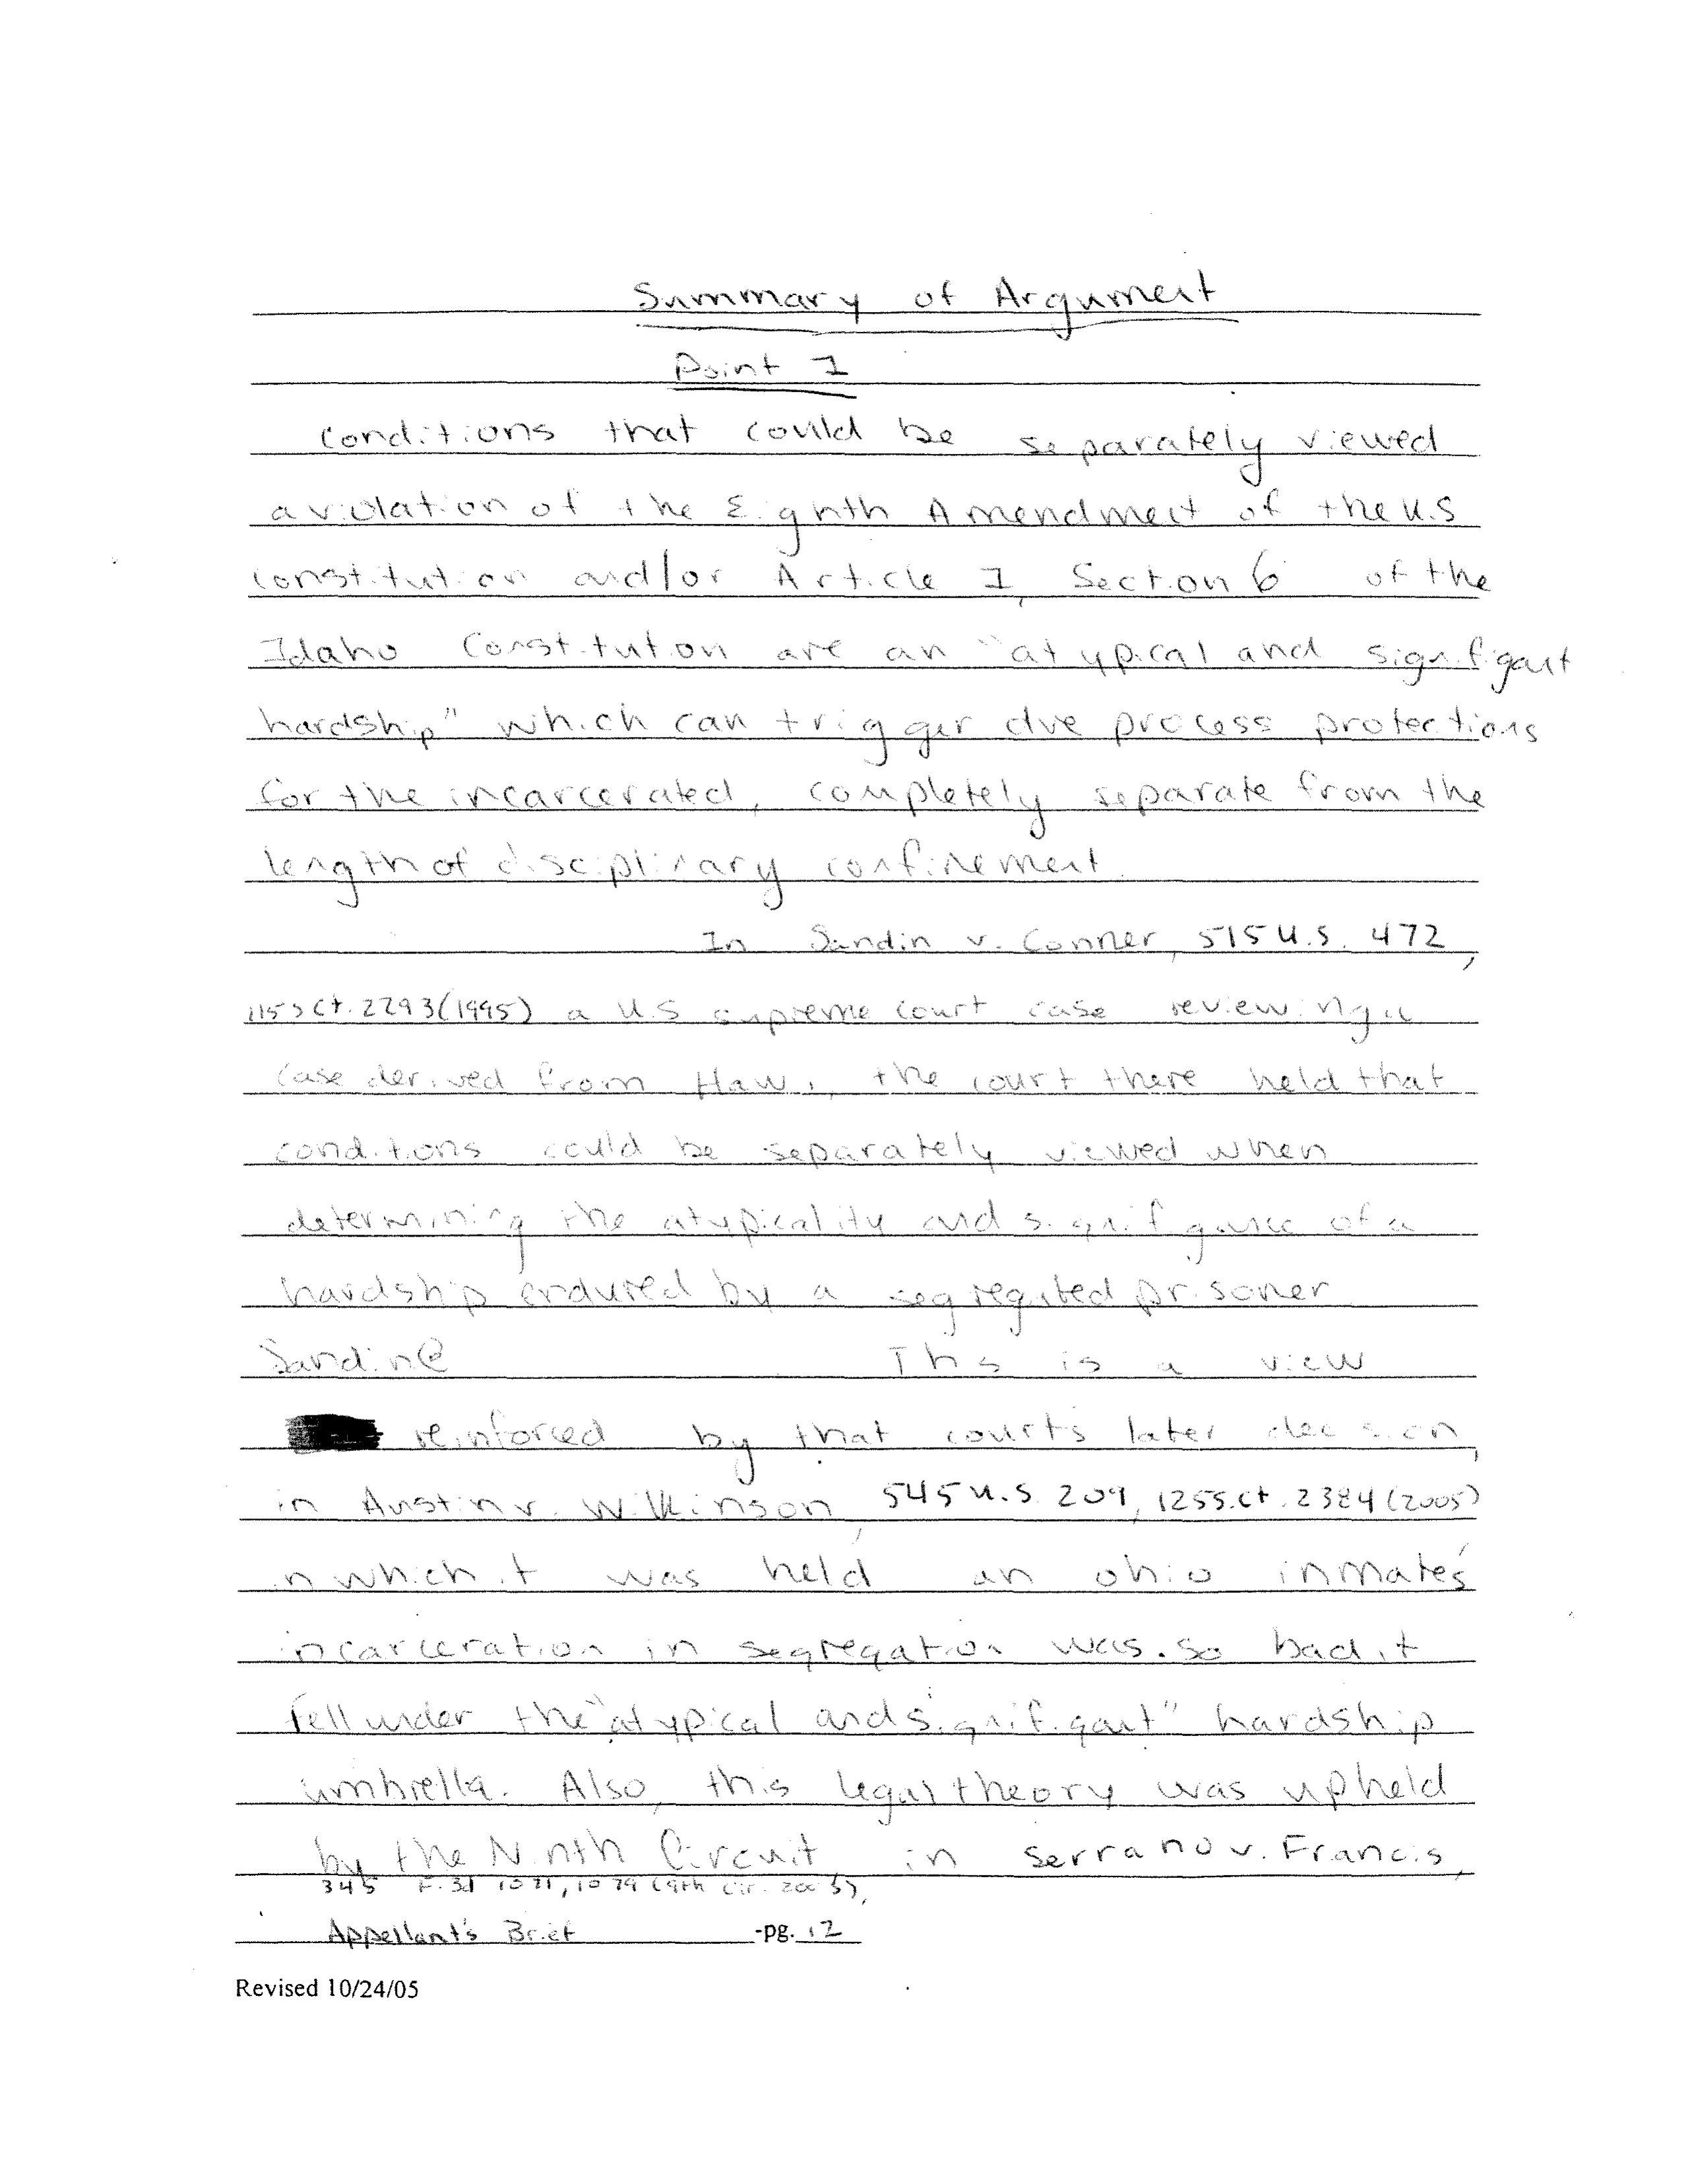 Summary of Argument
Point I
Conditions that could be separately viewed
a violation of the Eighth Amendment of the U.S
Constitution and/or Article I, Section 6 of the
Idaho Constitution are an "atypical and signifigant
hardship" which can trigger due process protections
for the incarcerated, completely separate from the
length of disciplinary confinement.
In Sandin v. Conner, 515 U.S. 472,
115 S Ct. 2293 (1995) a U.S supreme court case reviewing a
case derived from the court there held that
conditions could be separately viewed when
determining the atypicality and signifigance of a
hardship endured by a segregated prisoner
Sandin@ This is a view
reinforced by that courts later decision,
in Austin v. Wilkinson, 545 U.S. 209, 125 S.Ct. 2384 (2005)
in which it was held an ohio inmates'
incarceration in segregation was so bad it
fell under the "atypical and signifigant" hardship
umbrella. Also, this legal theory was upheld
by the Ninth Circuit in Serrano v. Francis,
345 F.3d 1071, 1079 (9th Cir.
Appellant's Brief -pg. 12
Revised 10/24/05